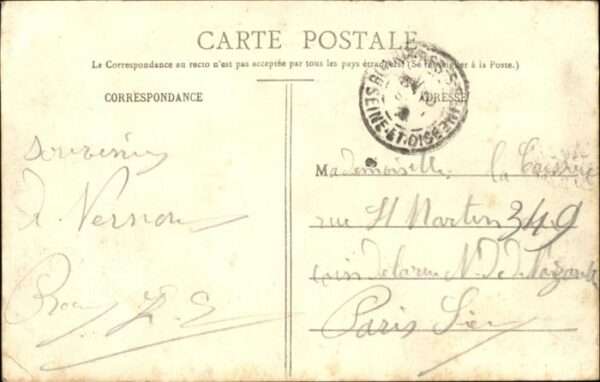 CARTE POSTALE
La Correspondance au recto n'est pas acceptée par tous les pays étrangers (Se renseigner à la Poste.)
CORRESPONDANCE
ADRESSE
SEINE-ET-OISE
souvenir
de Vernon
Mademoiselle la
rue St Martin 349
coin de la rue N. de Nazareth
Paris